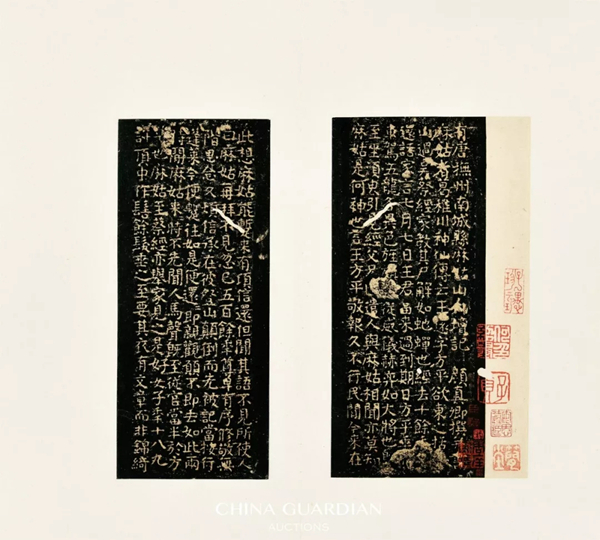 有唐撫州南城縣麻姑山仙壇記 顏真卿撰并書
麻姑者葛稚川神仙傳云王遠字方平欲東之括蒼
山過吳蔡經家教其尸解如蛇蟬也經去十餘年忽
還語家言七月七日王君當來過到期日方平乘羽
車駕五龍各異色旌旗導從威儀赫弈如大將也既
至坐須臾引見經父兄因遣人與麻姑相聞亦莫知
麻姑是何神也言王方平敬報久不行民間今來在
此想麻姑能蹔來有頃信還但聞其語不見所使人
曰麻姑再拜不見忽已五百餘年尊卑有序修敬無
階思念久煩信承在彼登山顛倒而先被記當按行
蓬萊今便蹔往如是便還還即親觀願不即去如此兩
時間麻姑來來時不先聞人馬聲既至從官當半於方
平也麻姑至蔡經亦舉家見之是好女子年十八九
許頂中作髻餘髮垂之至要其衣有文章而非錦綺
CHINA GUARDIAN
AUCTIONS